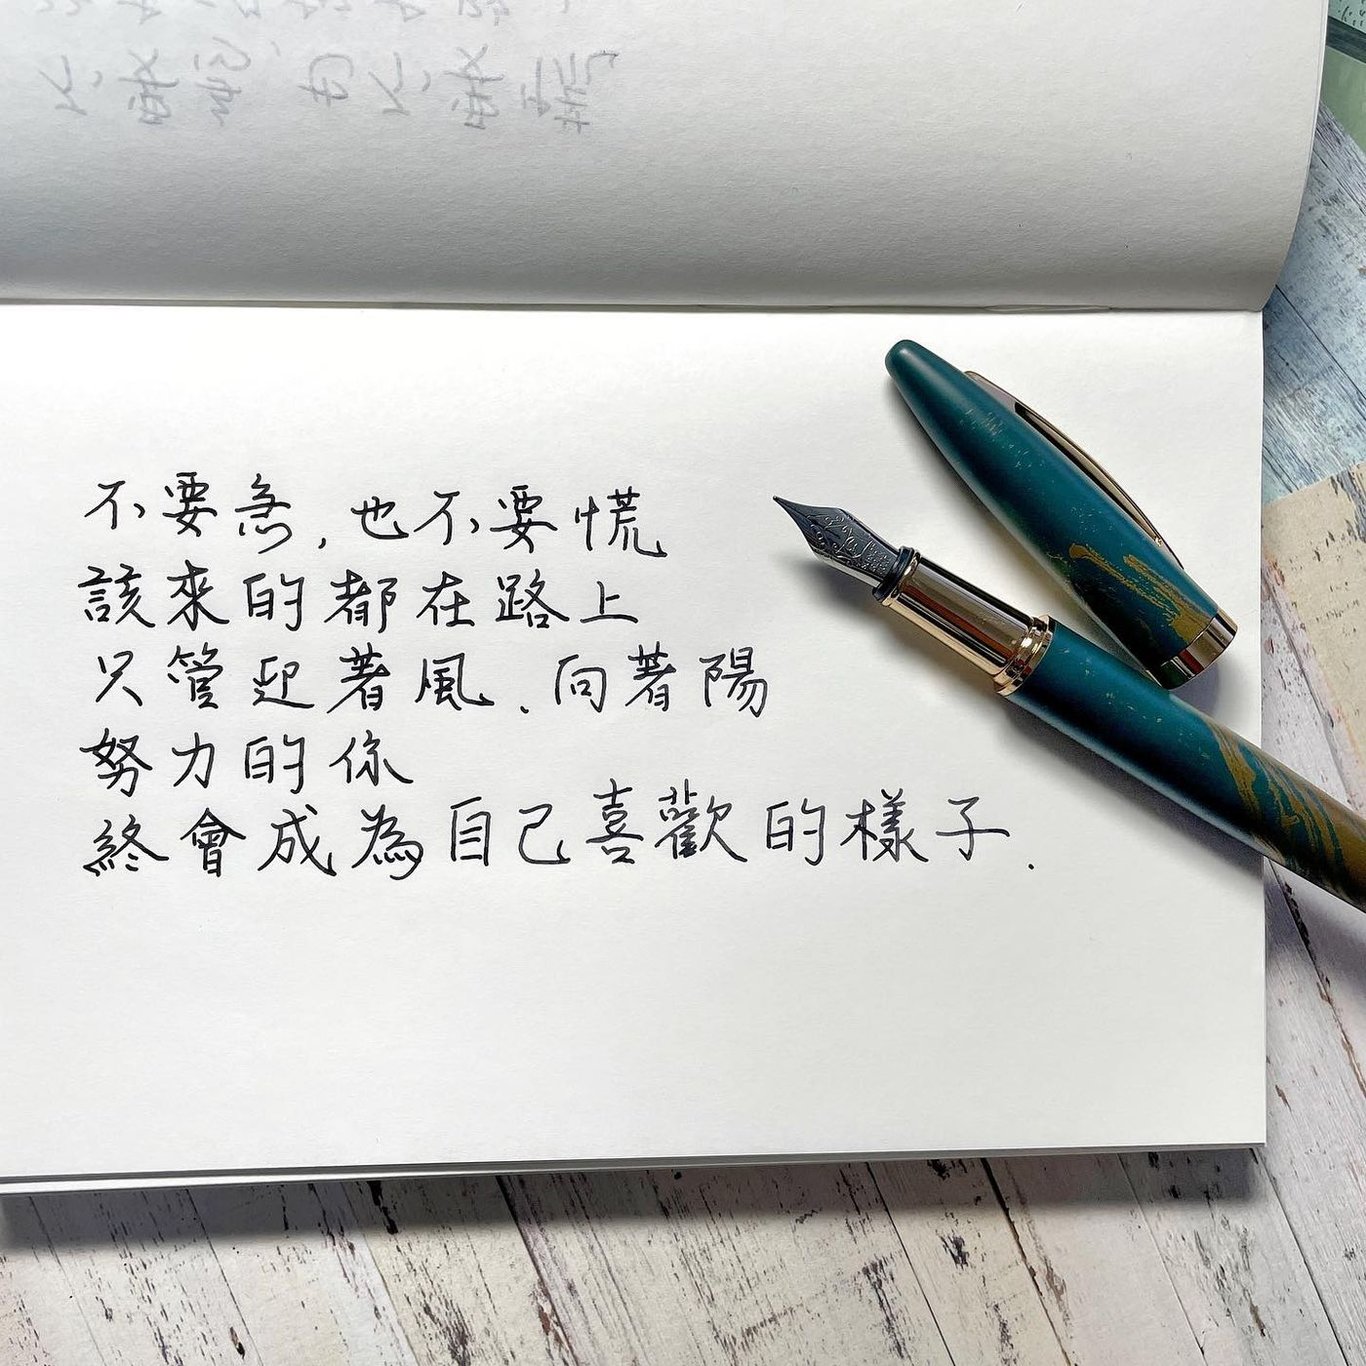 不要急，也不要慌
該來的都在路上
只管迎著風．向著陽
努力的你
終會成為自己喜歡的樣子．